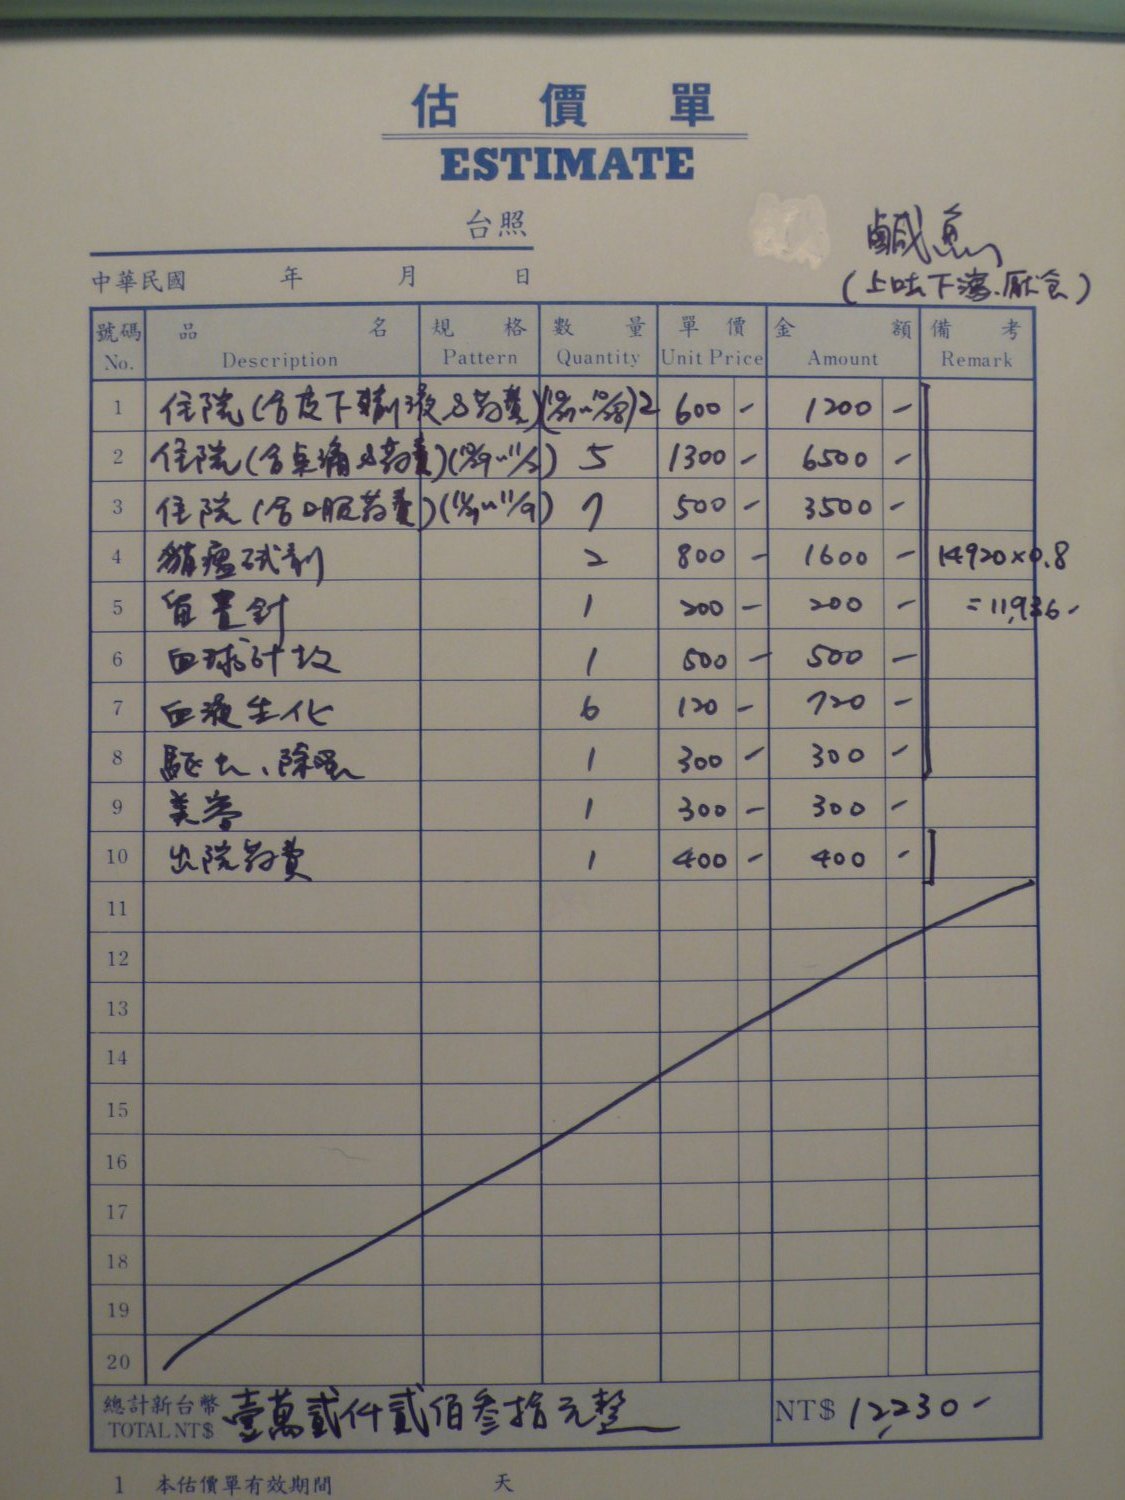 估價單
ESTIMATE
台照
鹹魚
(上吐下瀉、厭食)
中華民國 年 月 日
號碼 品名 規格 數量 單價 金額 備考
No. Description Pattern Quantity Unit Price Amount Remark
1 住院(含皮下輸液&藥費)( ) 2 600 - 1200 -
2 住院(含點滴&藥費)(10/29~11/2) 5 1300 - 6500 -
3 住院(含口服藥費)(11/3~11/9) 7 500 - 3500 -
4 貓瘟試劑 2 800 - 1600 - 14920×0.8
5 留置針 1 200 - 200 - =11,936-
6 血球計數 1 500 - 500 -
7 血液生化 6 120 - 720 -
8 驅虫、除蚤 1 300 - 300 -
9 美容 1 300 - 300 -
10 出院藥費 1 400 - 400 -
11
12
13
14
15
16
17
18
19
20
總計新台幣 壹萬貳仟貳佰叁拾元整
TOTAL NT$ NT$ 12,230-
1 本估價單有效期間 天